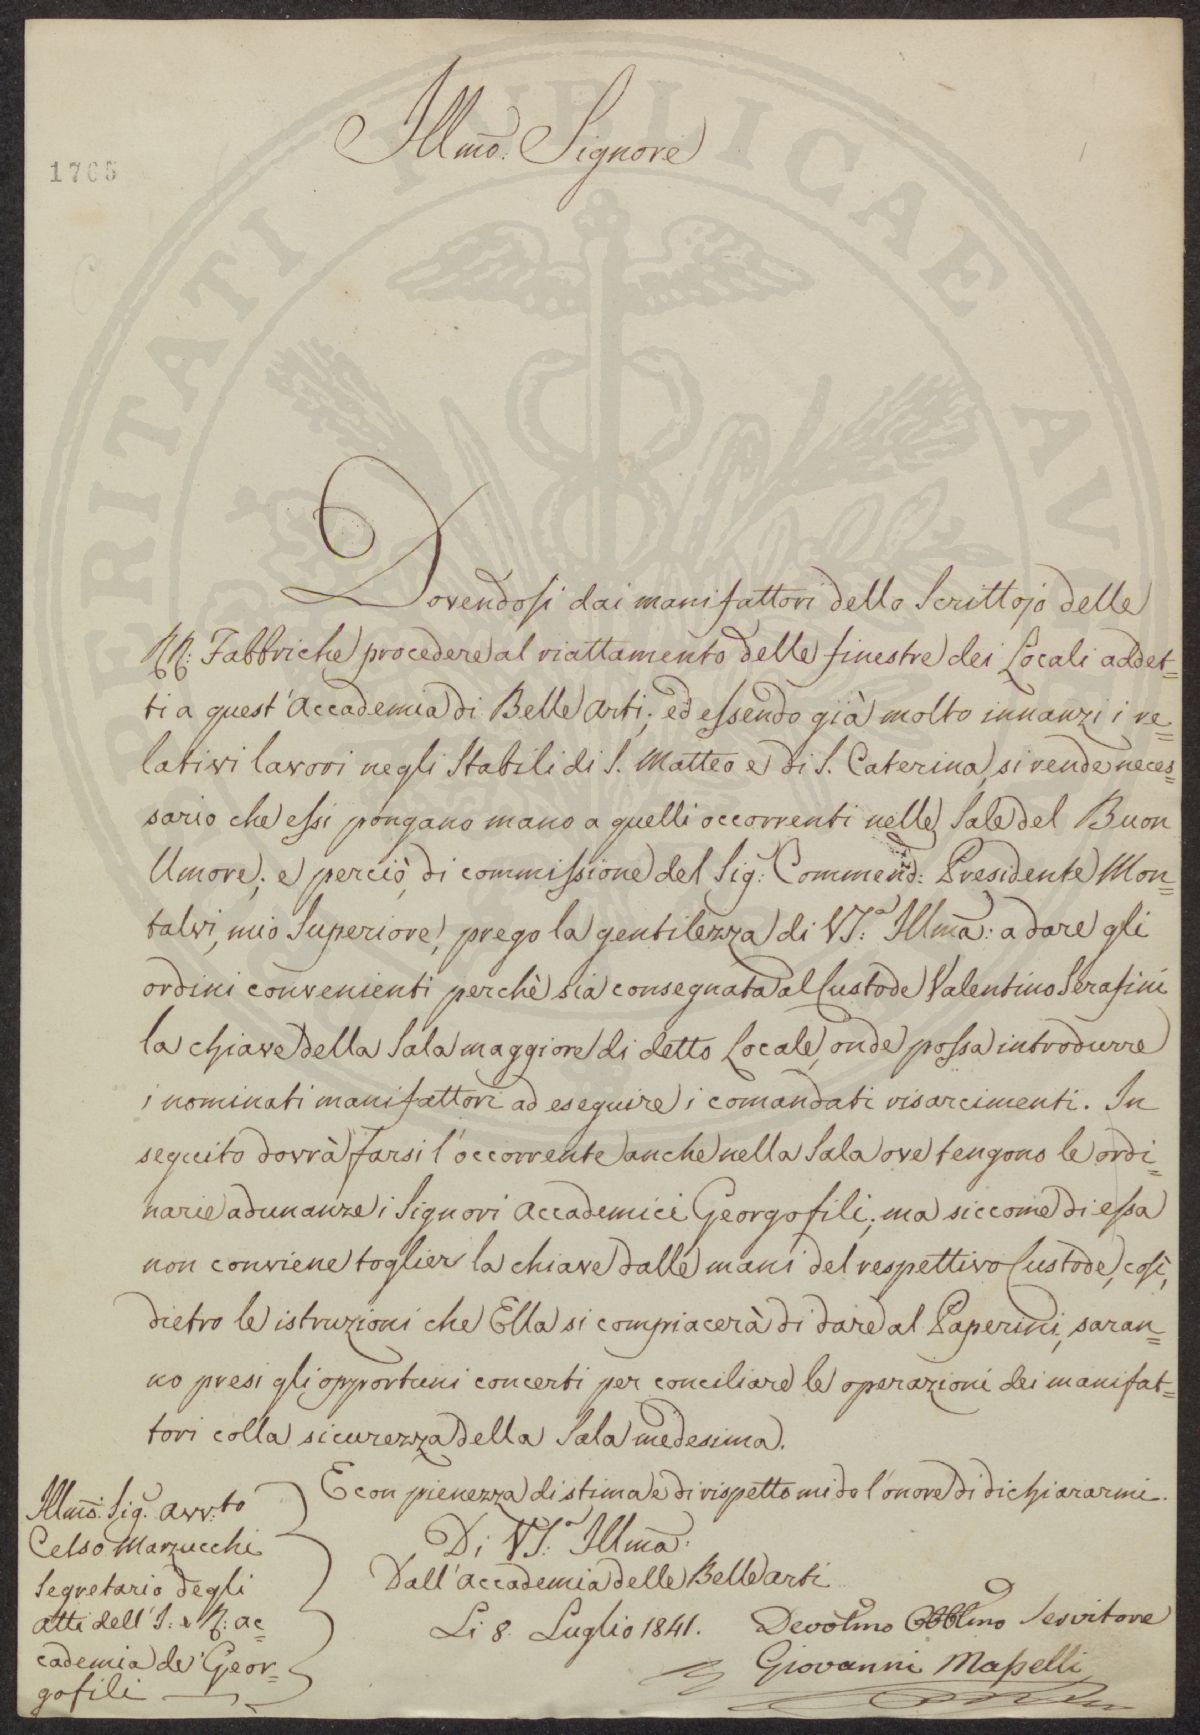 PROSPERITATI PUBLICAE AUGENDAE
Illmo. Signore
1765
Dovendosi dai manifattori dello Scrittojo delle
RR: Fabbriche procedere al riattamento delle finestre dei Locali addet=
ti a quest'Accademia di Belle Arti; ed essendo già molto innanzi i re=
lativi lavori negli Stabili di S. Matteo e di S. Caterina, si rende neces=
sario che essi pongano mano a quelli occorrenti nelle Sale del Buon
Umore; e perciò, di commissione del Sig: Commend: Presidente Mon=
talvi, mio Superiore, prego la gentilezza di VS.a Illma: a dare gli
ordini convenienti perchè sia consegnata al Custode Valentino Serafini
la chiave della Sala maggiore di detto Locale, onde possa introdurre
i nominati manifattori ad eseguire i comandati risarcimenti. In
seguito dovrà farsi l'occorrente anche nella Sala ove tengono le ordi=
narie adunanze i Signori Accademici Georgofili; ma siccome di essa
non conviene toglier la chiave dalle mani del respettivo Custode, così,
dietro le istruzioni che Ella si compiacerà di dare al Paperini, saran=
no presi gli opportuni concerti per conciliare le operazioni dei manifat=
tori colla sicurezza della Sala medesima.
E con pienezza di stima e di rispetto mi do l'onore di dichiararmi.
Di VS.a Illma:
Dall'Accademia delle Belle Arti
Li 8. Luglio 1841.
Devotmo Obblmo Servitore
Giovanni Mapelli
Illmo. Sig. Avv.to
Celso Marzucchi
Segretario degli
Atti dell'I: e R: Ac=
cademia de' Geor=
gofili